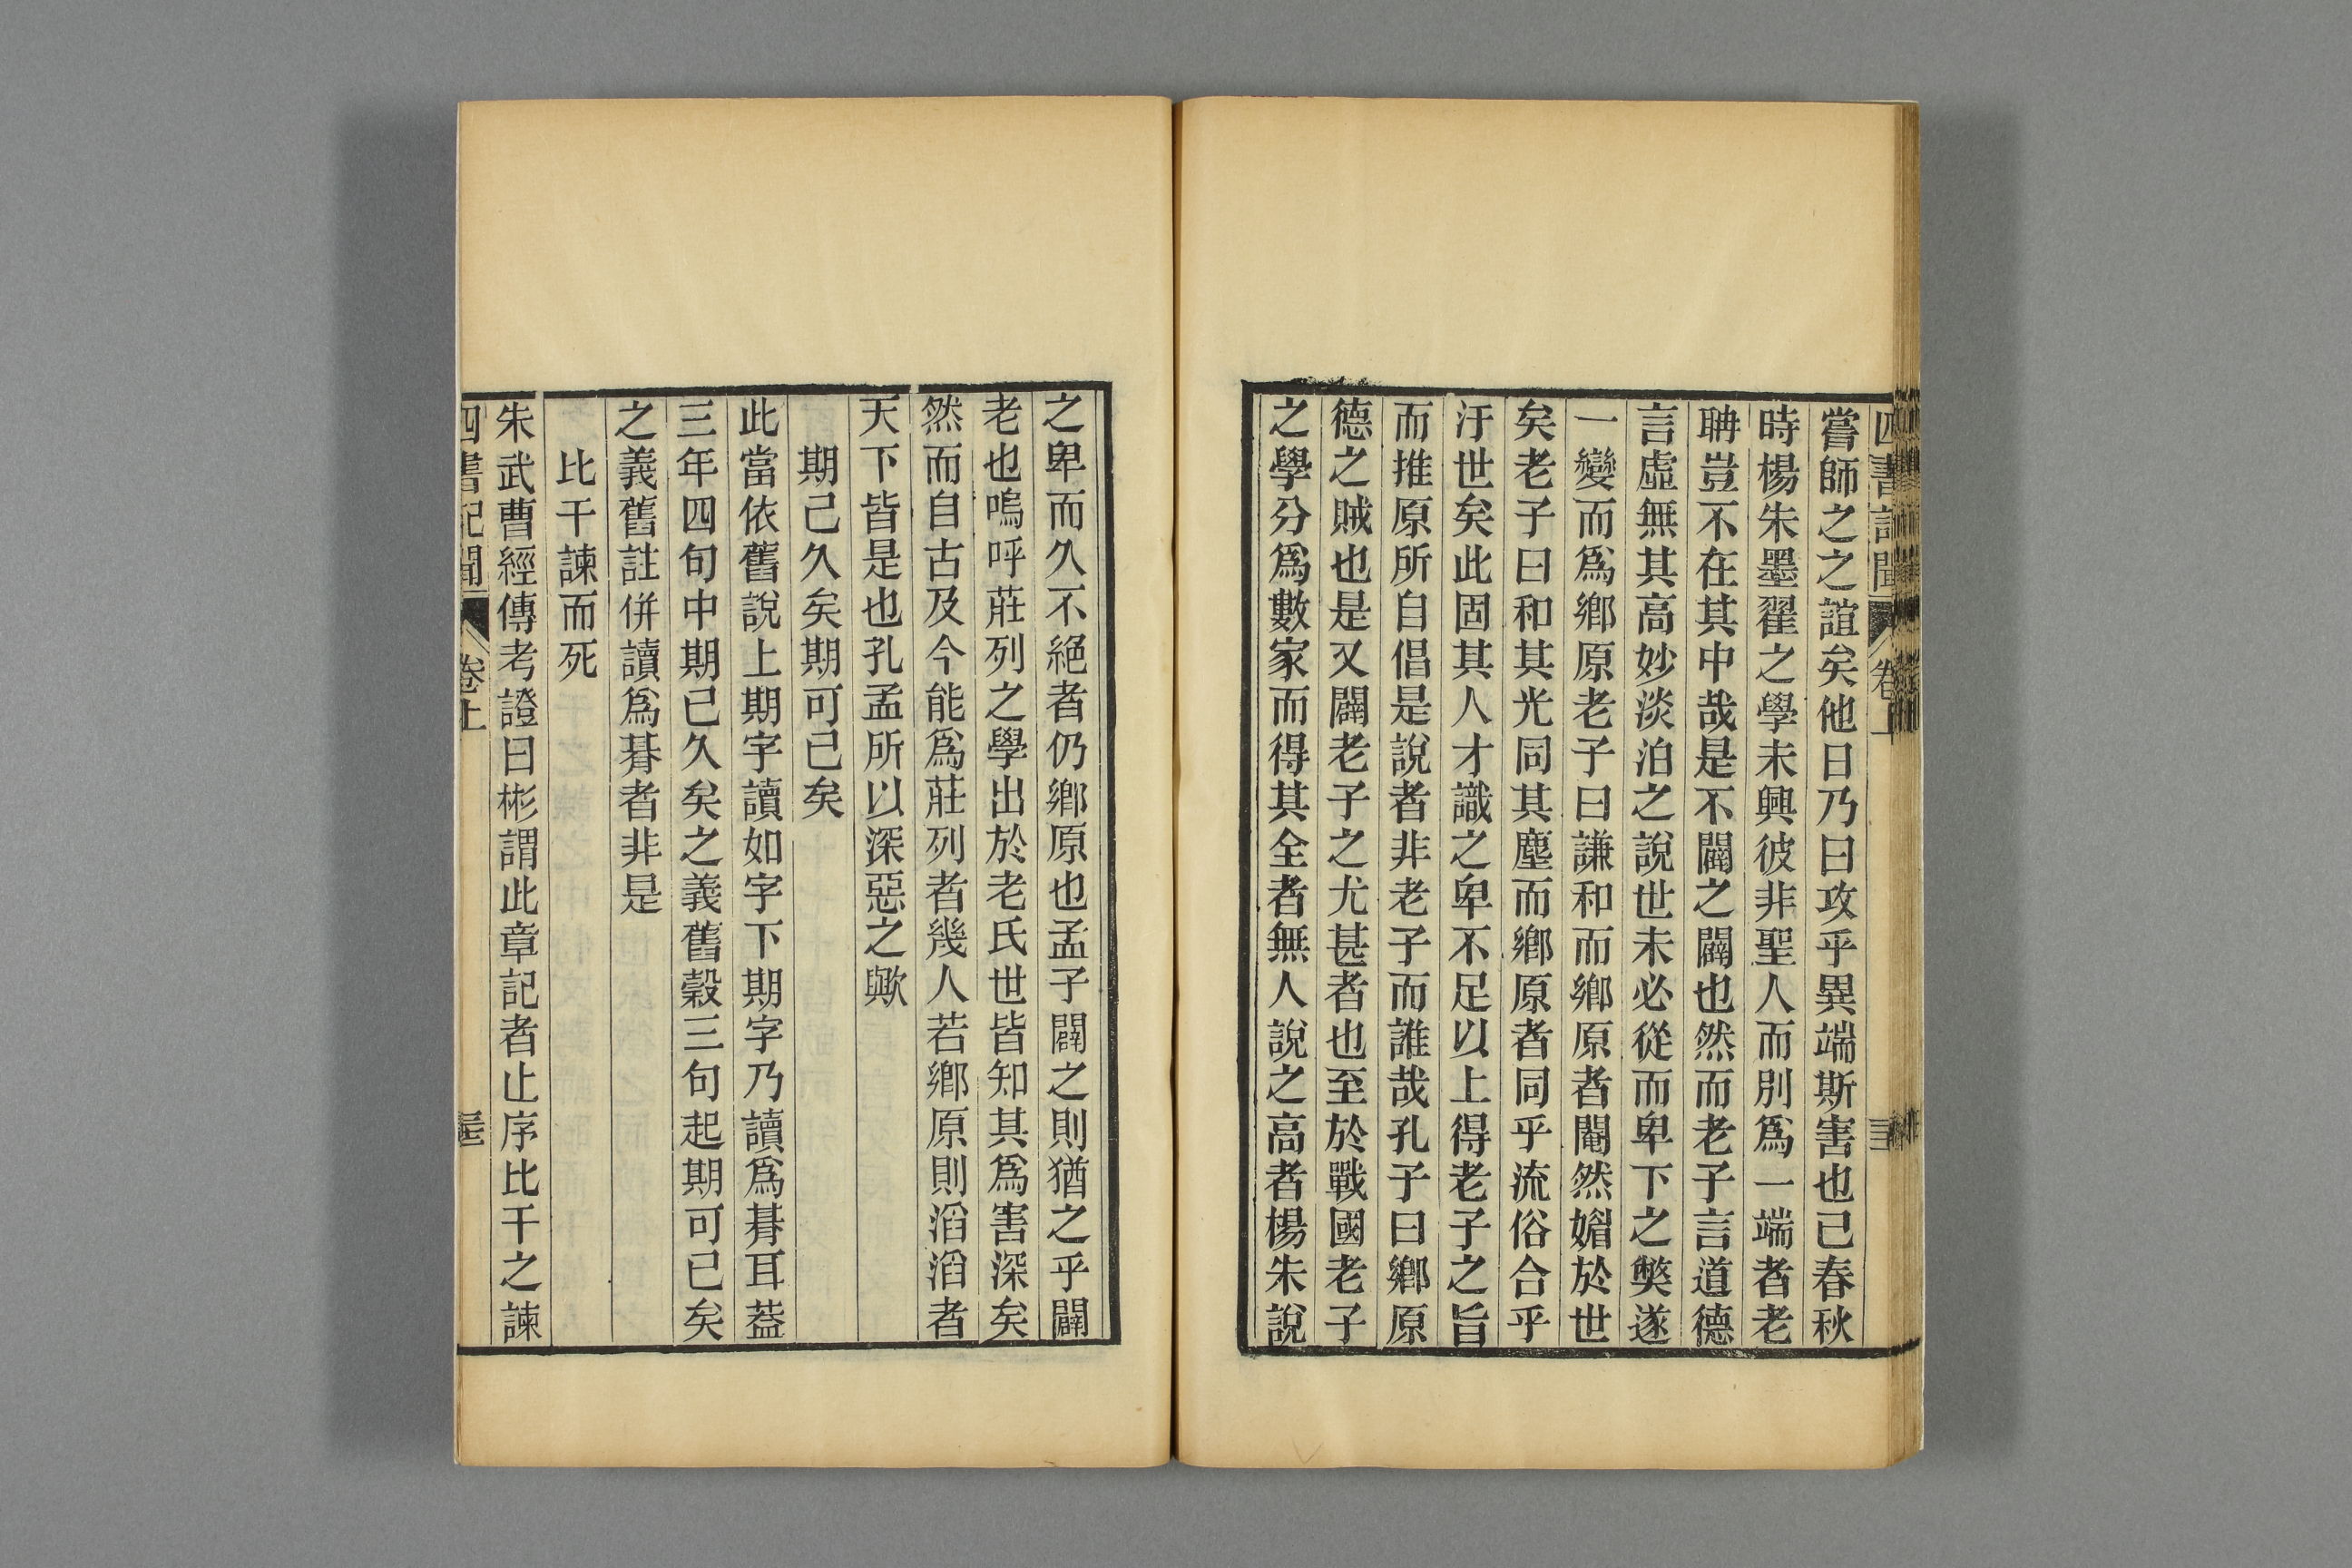 四書記聞 卷上
嘗師之之誼矣他日乃曰攻乎異端斯害也已春秋
時楊朱墨翟之學未興彼非聖人而別爲一端者老
聃豈不在其中哉是不闢之闢也然而老子言道德
言虛無其高妙淡泊之說世未必從而卑下之獘遂
一變而爲鄉原老子曰謙和而鄉原者閹然媚於世
矣老子曰和其光同其塵而鄉原者同乎流俗合乎
汙世矣此固其人才識之卑不足以上得老子之旨
而推原所自倡是說者非老子而誰哉孔子曰鄉原
德之賊也是又闢老子之尤甚者也至於戰國老子
之學分爲數家而得其全者無人說之高者楊朱說
之卑而久不絕者仍鄉原也孟子闢之則猶之乎闢
老也嗚呼莊列之學出於老氏世皆知其爲害深矣
然而自古及今能爲莊列者幾人若鄉原則滔滔者
天下皆是也孔孟所以深惡之歟
期已久矣期可已矣
此當依舊說上期字讀如字下期字乃讀爲朞耳葢
三年四句中期已久矣之義舊穀三句起期可已矣
之義舊註併讀爲朞者非是
比干諫而死
朱武曹經傳考證曰彬謂此章記者止序比干之諫
四書記聞 卷上